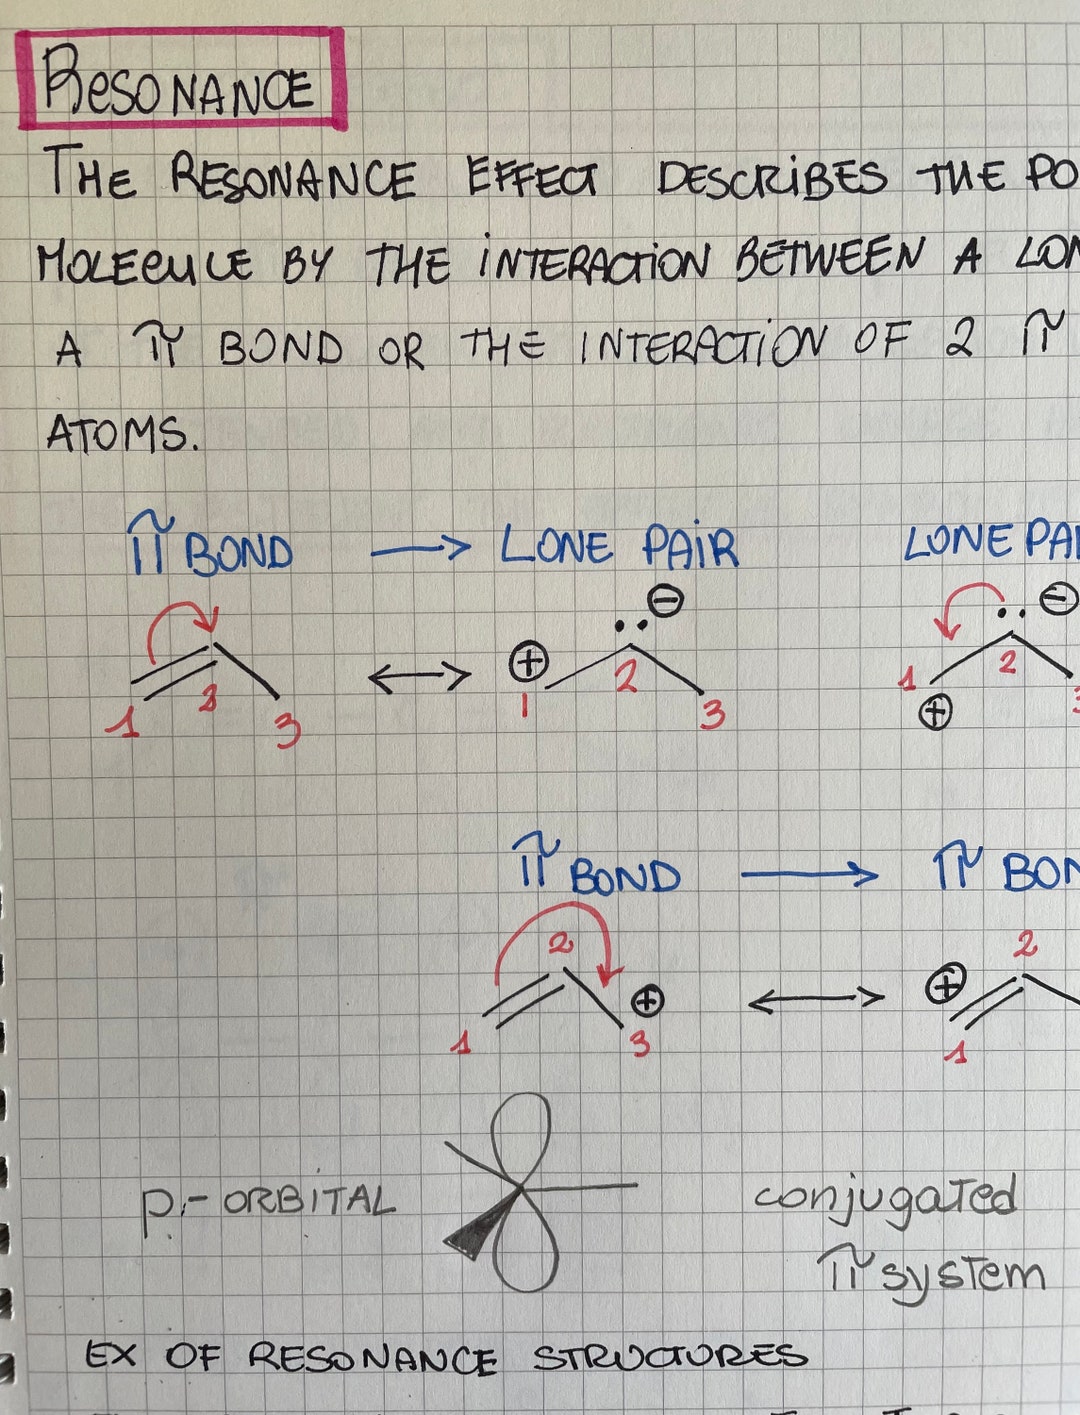 RESONANCE
THE RESONANCE EFFECT DESCRIBES THE PO
MOLECULE BY THE INTERACTION BETWEEN A LON
A π BOND OR THE INTERACTION OF 2 π
ATOMS.
π BOND → LONE PAIR LONE PAI
⊖ ⊖
⊕
1 2 3 ↔ 1 2 3 1 2 3
⊕
π BOND → π BON
2 2
⊕ ↔ ⊕
1 3 1
p - ORBITAL conjugated
π system
EX OF RESONANCE STRUCTURES